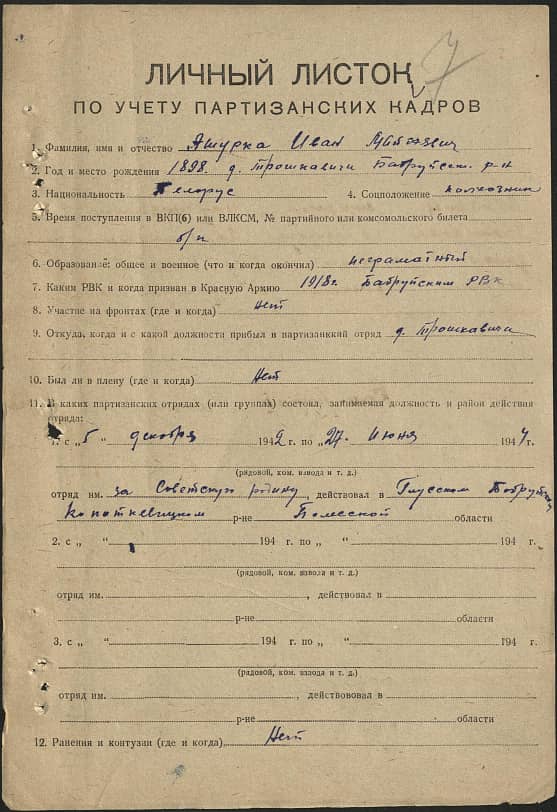 7
ЛИЧНЫЙ ЛИСТОК
ПО УЧЕТУ ПАРТИЗАНСКИХ КАДРОВ
1. Фамилия, имя и отчество Ятурка Иван
2. Год и место рождения 1898. д. Трошкавичи Бабруйск. р-н
3. Национальность Белорус 4. Соцположение колхозник
5. Время поступления в ВКП(б) или ВЛКСМ, № партийного или комсомольского билета
б/п
6. Образование: общее и военное (что и когда окончил) неграматный
7. Каким РВК и когда призван в Красную Армию 1918г. Бабруйским РВК
8. Участие на фронтах (где и когда) Нет
9. Откуда, когда и с какой должности прибыл в партизанкий отряд д. Трошкавичи
10. Был ли в плену (где и когда) Нет
11. В каких партизанских отрядах (или группах) состоял, занимаемая должность и район действия
отряда:
1. с „5 “ декабря 1942 г. по „27 “ Июня 1944 г.
(рядовой, ком. взвода и т. д.)
отряд им. за Советскую родину, действовал в Глусском Бабруйском
Копоткевицком р-не Полесской области
2. с „ “ 194 г. по „ “ 194 г.
(рядовой, ком. взвола и т. д.)
отряд им. , действовал в
р-не области
3. с „ “ 194 г. по „ “ 194 г.
(рядовой, ком. взвода и т. д.)
отряд им. , действововал в
р-не области
12. Ранения и контузии (где и когда) Нет